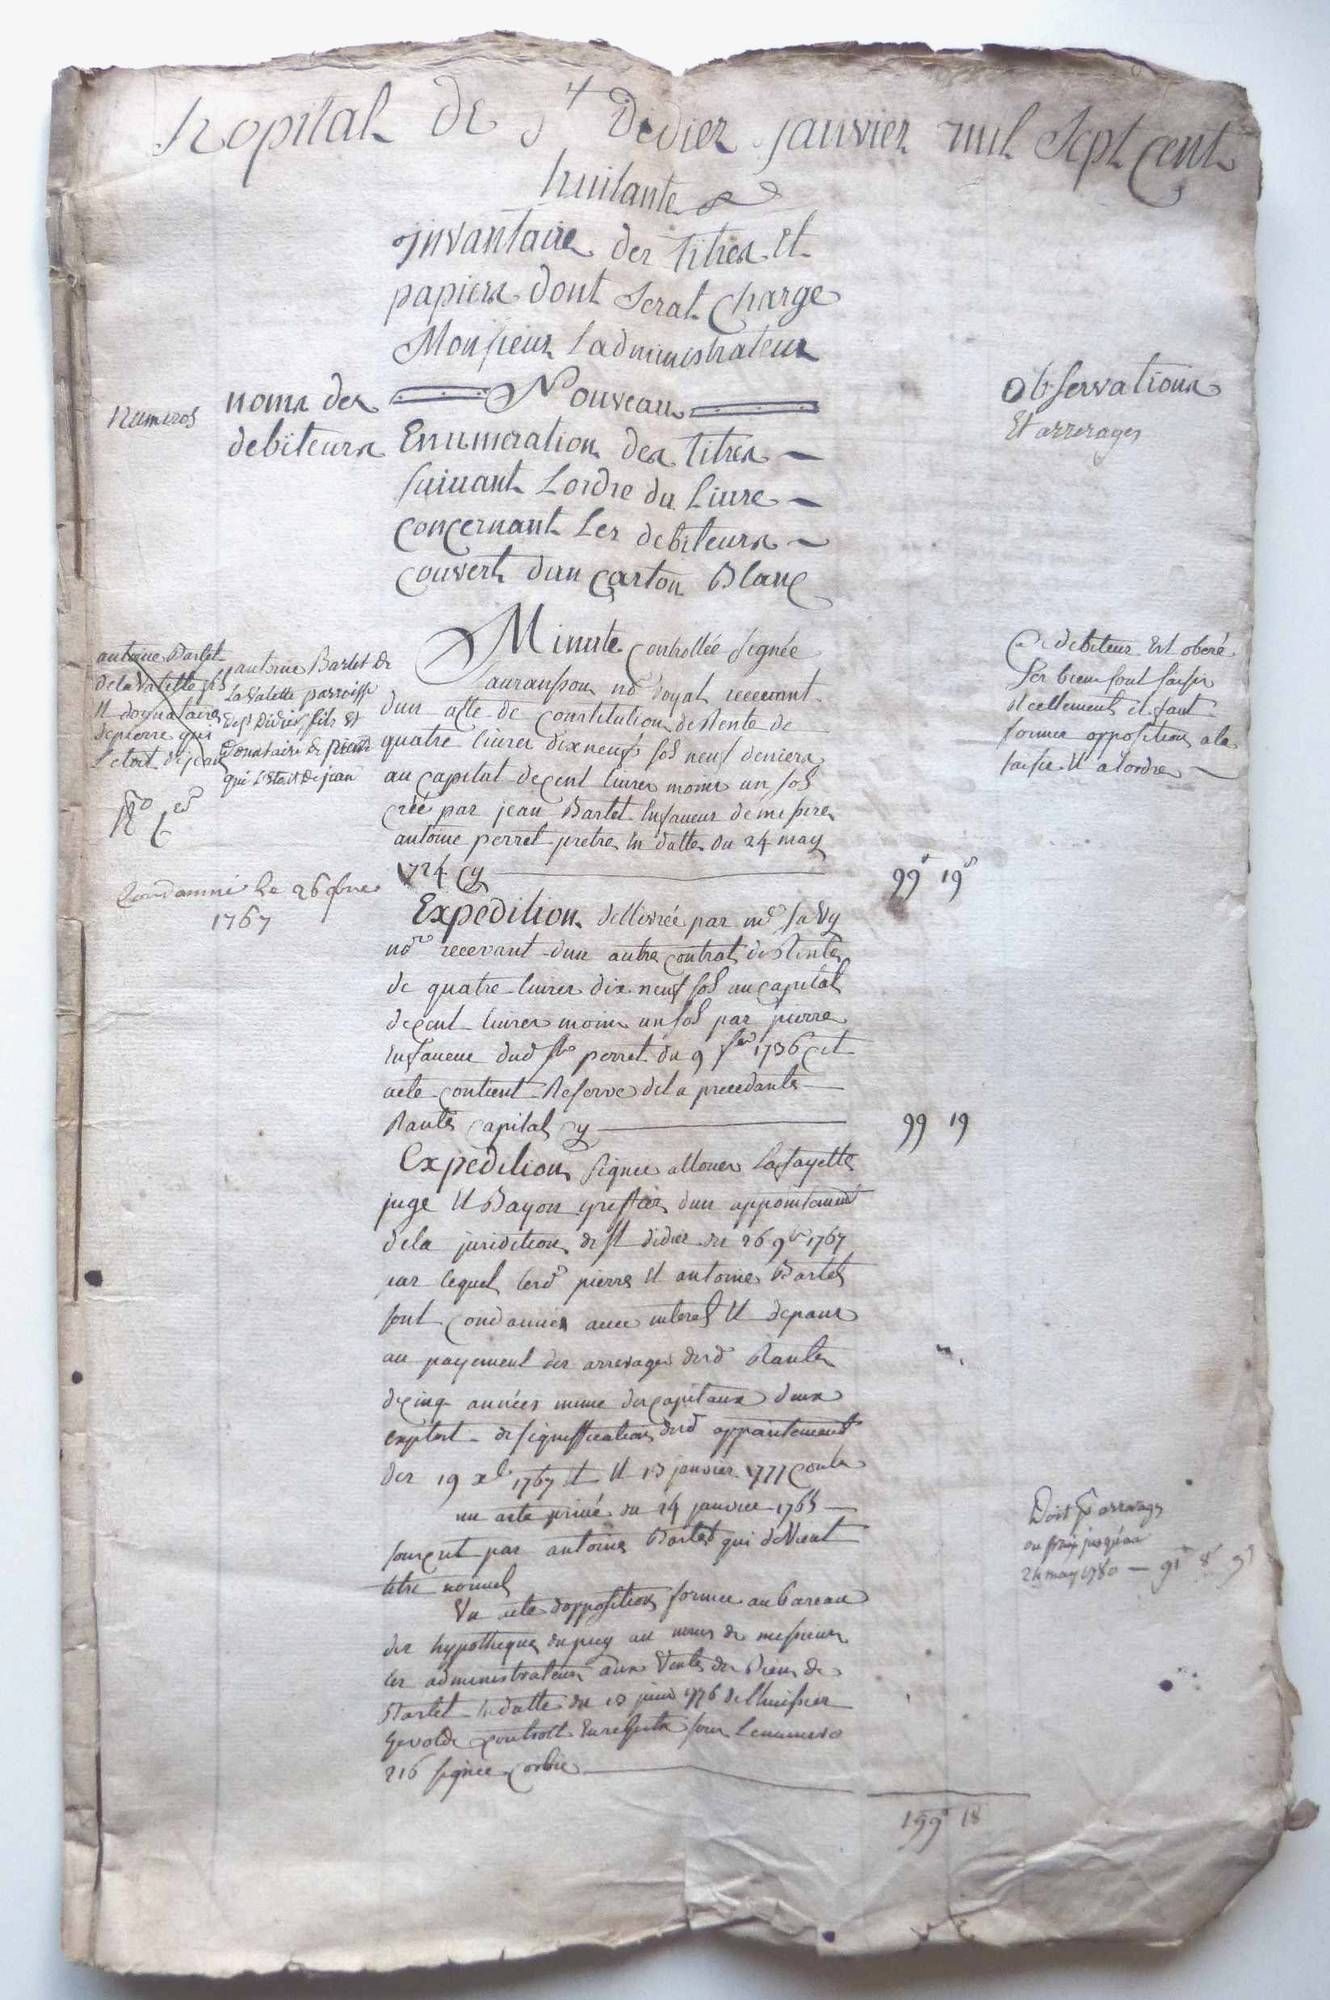 hopital de St Didier janvier mil sept cent
huitante
jnvantaire des titres et
papiers dont serat charge
Monsieur Ladministrateur
Nouveau
numeros
noms des
debiteurs
Observations
Et arrerages
Enumeration des titres
suivant Lordre du Livre
concernant Les debiteurs
couvert dun carton Blanc
antoine Barlet
dela valette fils
et donnataire
de pierre qui
Letoit de jean
No 1er
Condamné Le 26
1767
antoine Barlet de
La valette parroisse
de st Didier fils et
donataire de pierre
qui L'etait de jean
Minute Controllée signée
Sauranson nre Royal recevant
dun acte de constitution de Rente de
quatre livres dixneuf sols neuf deniers
au capital de cent livres moins un sol
créé par jean Barlet En faveur de messire
antoine perret pretre en datte du 24 may
1724 Cy 99 19
Expedition dellivrée par me
nore recevant dun autre contrat de Rente
de quatre livres dix neuf sols au capital
de cent livres moins un sol par pierre
En faveur dud perret du 9 1736 cet
acte contient Reserve de la precedante
Rante capital Cy 99 19
Expedition signée allouer Lafayette
juge et Bayon greffier dun appointement
de la juridition de st didier du 26 9bre 1767
par lequel lesd pierre et antoine Barlet
sont condannés avec interet et depans
au payement des arrerages desd Rantes
de cinq années meme des capitaux deux
exploit de signiffication dud appointement
des 19 xbre 1767 et 13 janvier 1771
un acte privé du 24 janvier 1765
souscrit par antoine Barlet qui devient
titre nouvel
Un acte doppposition formée au bareau
des hypotheques du puy au nom de messieurs
Les administrateurs aux Vente des Biens de
Barlet En datte du 13 juin 1776 de Lhuissier
controllé Enregistré sous Le numero
216 signée corbie
199 18
Ce debiteur Est oberé
Ses biens sont saisis
réellement il faut
former opposition a la
saisie et a lordre
Doit d'arrerages
ou frix jusqu'au
24 may 1780 — 91 8 9